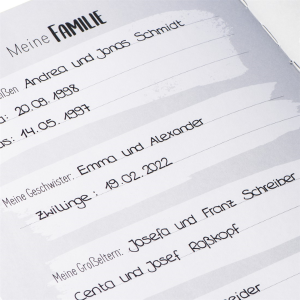 Meine FAMILIE
ißen Andrea und Jonas Schmidt
a: 20.08.1998
as: 14.05.1997
Meine Geschwister: Emma und Alexander
Zwillinge: 19.02.2022
Meine Großeltern: Josefa und Franz Schreiber
Centa und Josef Roßkopf
eider